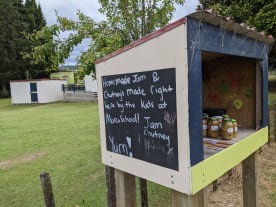 Homemade Jam &
Chutneys made right
here by the kids at
School!
Jam
Chutney
Yum!